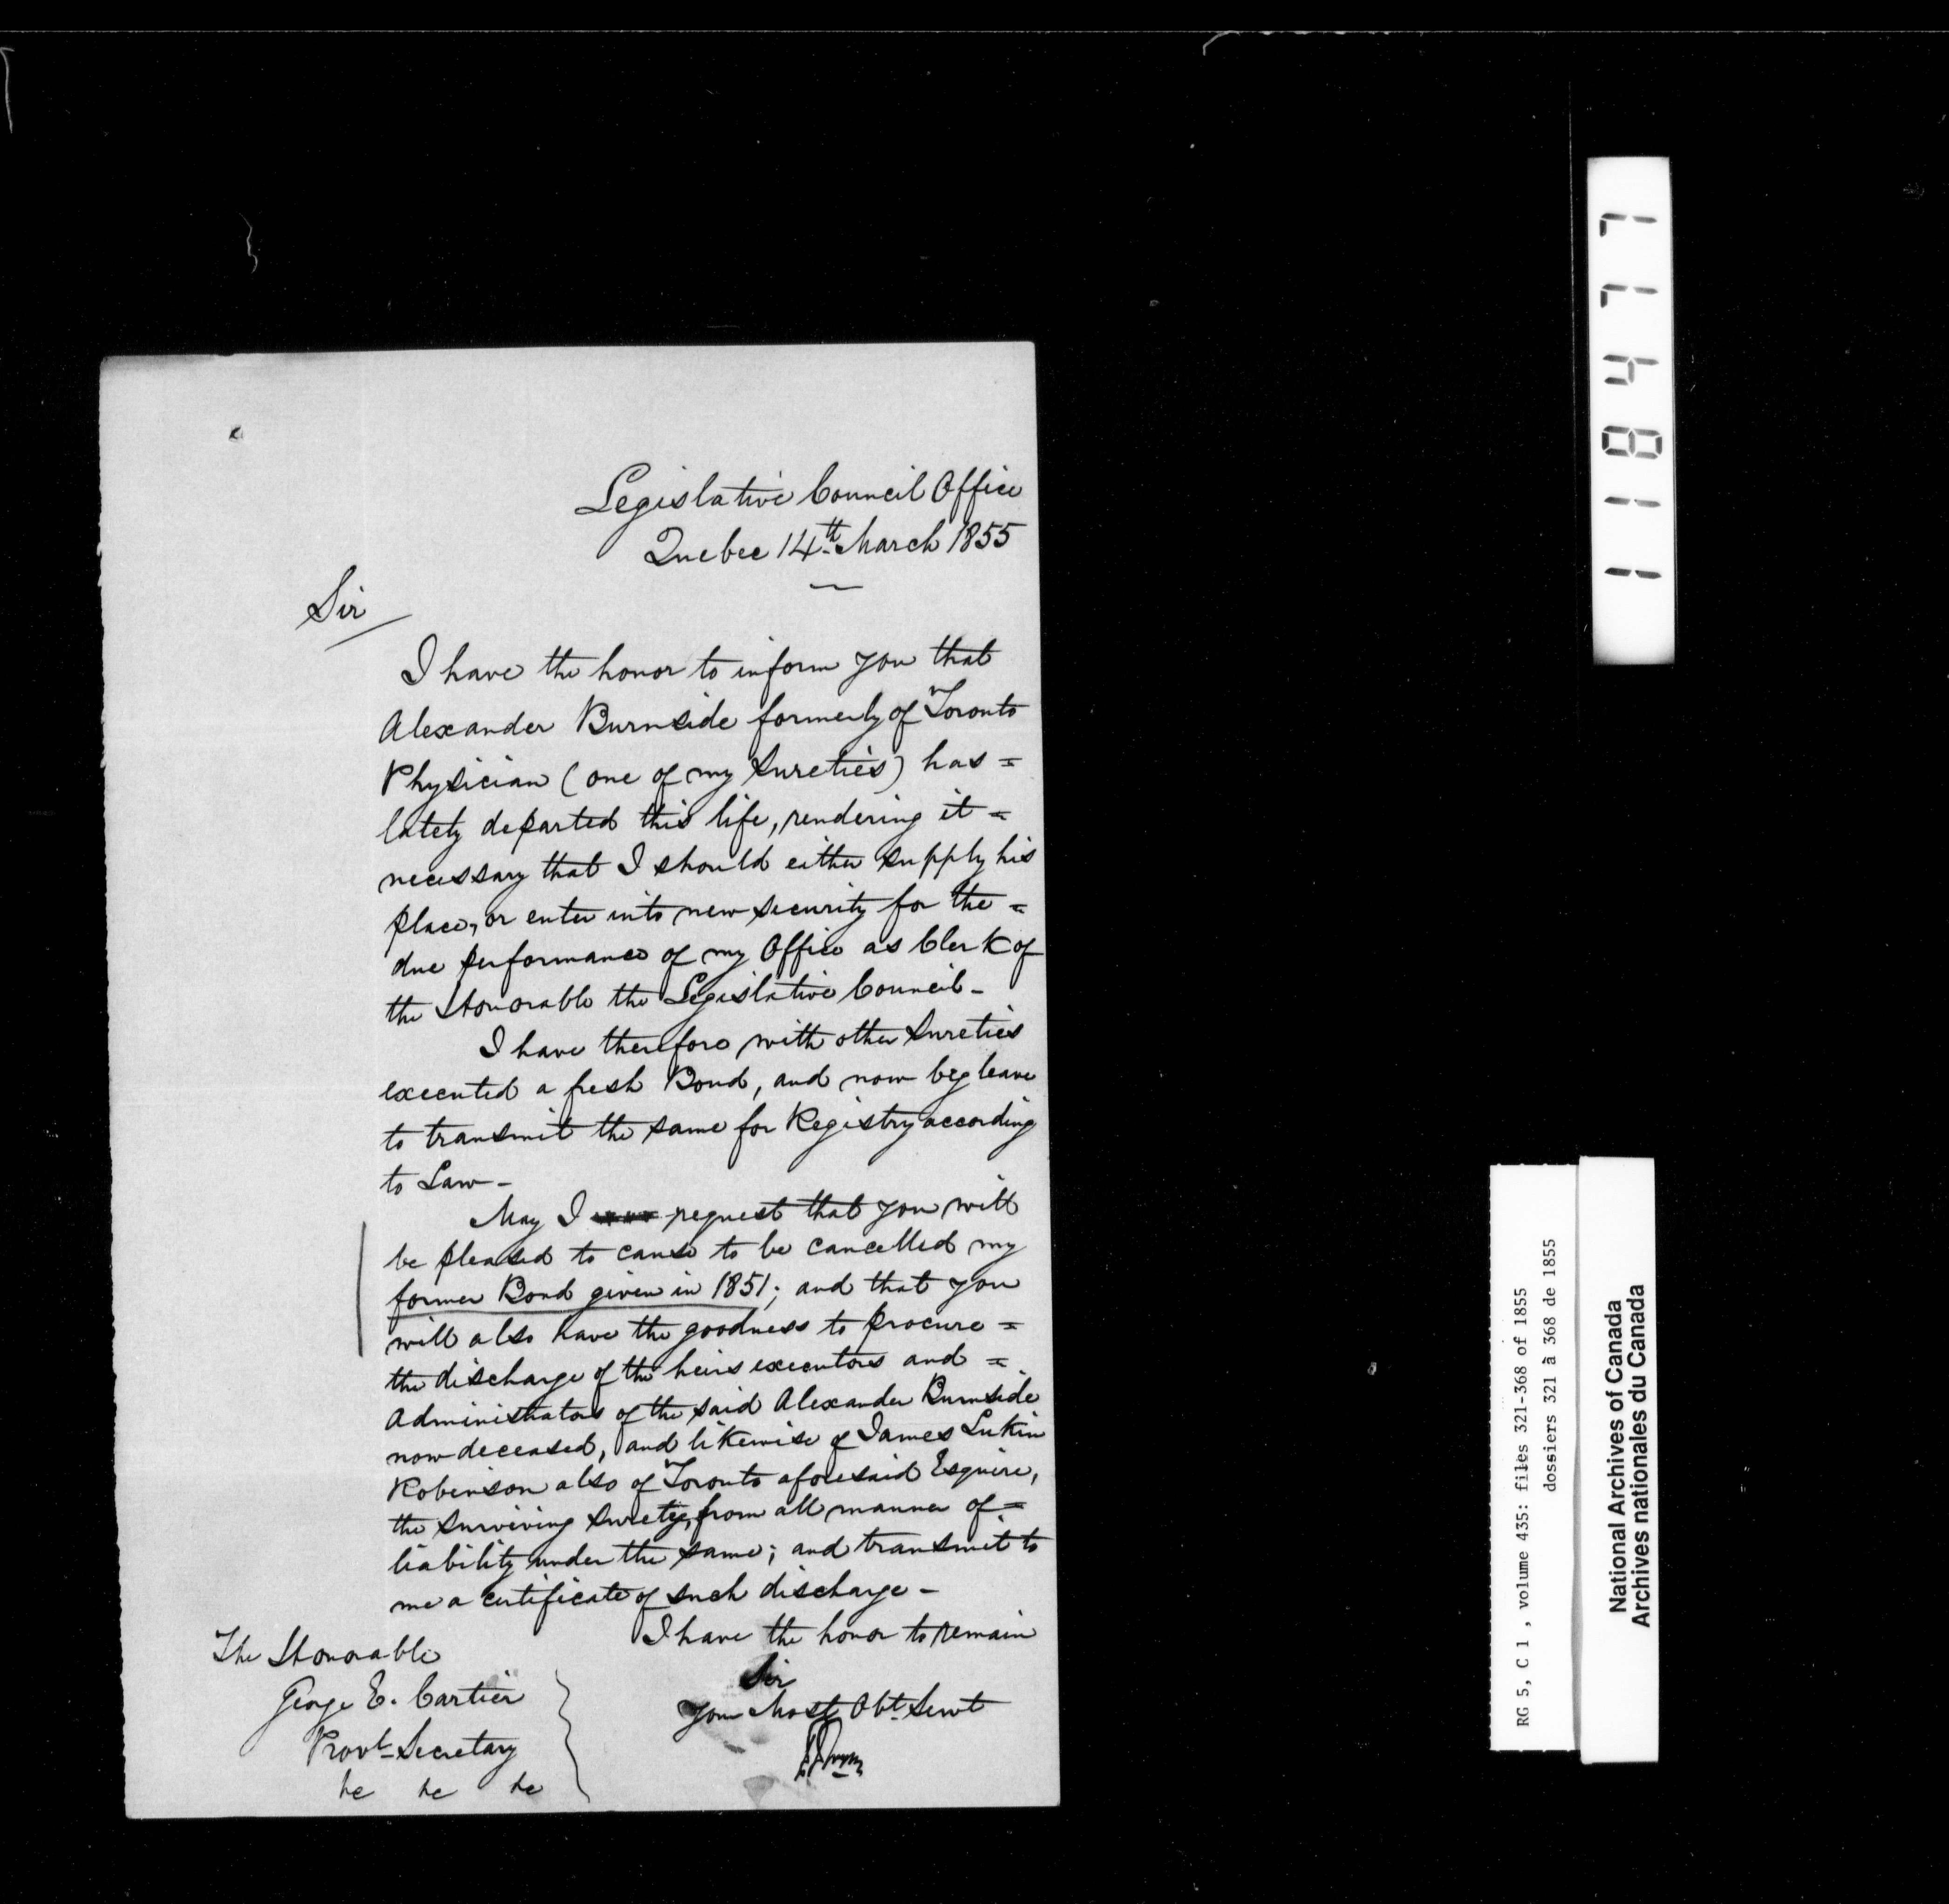 Legislative Council Office
Quebec 14th March 1855
Sir
I have the honor to inform you that
Alexander Burnside formerly of Toronto
Physician (one of my Sureties) has =
lately departed this life, rendering it =
necessary that I should either supply his
place, or enter into new security for the =
due performance of my Office as Clerk of
the Honorable the Legislative Council -
I have therefore with other Sureties
executed a fresh Bond, and now beg leave
to transmit the same for Registry according
to Law -
May I request that you will
be pleased to cause to be cancelled my
former Bond given in 1851; and that you
will also have the goodness to procure =
the discharge of the heirs executors and =
Administrators of the said Alexander Burnside
now deceased, and likewise of James Lukin
Robinson also of Toronto aforesaid Esquire,
the surviving Surety, from all manner of =
liability under the same; and transmit to
me a certificate of such discharge -
I have the honor to remain
Sir
Your Most Obt. Servt
The Honorable
George E. Cartier
Provl. Secretary
&c &c &c
118477
RG 5, C 1 , volume 435: files 321-368 of 1855
dossiers 321 à 368 de 1855
National Archives of Canada
Archives nationales du Canada